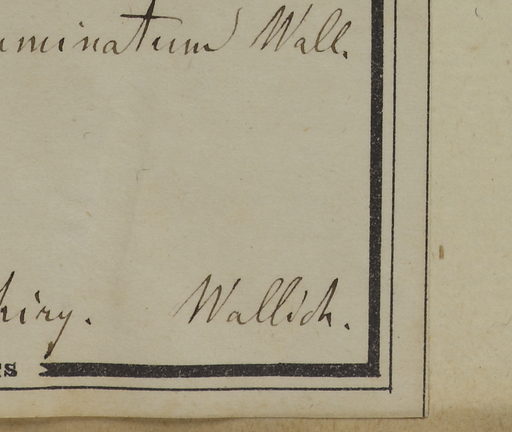 uminatum Wall.
hiry. Wallich.
rs